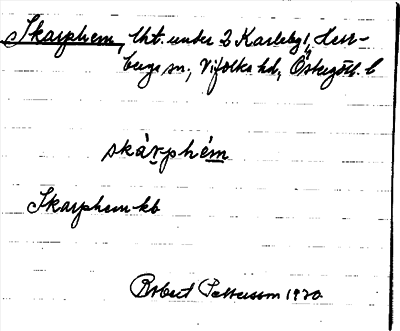 Skarphem, lht. under 2 Karleby, Herr-
berga sn, Vifolka hd, Östergötl. l
skàrphém
Skarphem kb
Robert Pettersson 1920